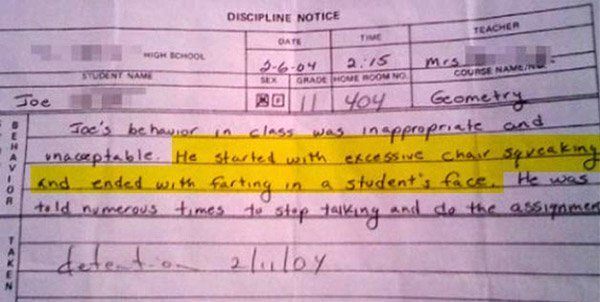 DISCIPLINE NOTICE
DATE TIME TEACHER
HIGH SCHOOL 2-6-04 2:15 Mrs
STUDENT NAME SEX GRADE HOME ROOM NO. COURSE NAME/NO.
Joe 11 404 Geometry
BEHAVIOR
Joe's behavior in class was inappropriate and
unacceptable. He started with excessive chair squeaking
and ended with farting in a student's face. He was
told numerous times to stop talking and do the assignment
TAKEN
detention 2/11/04